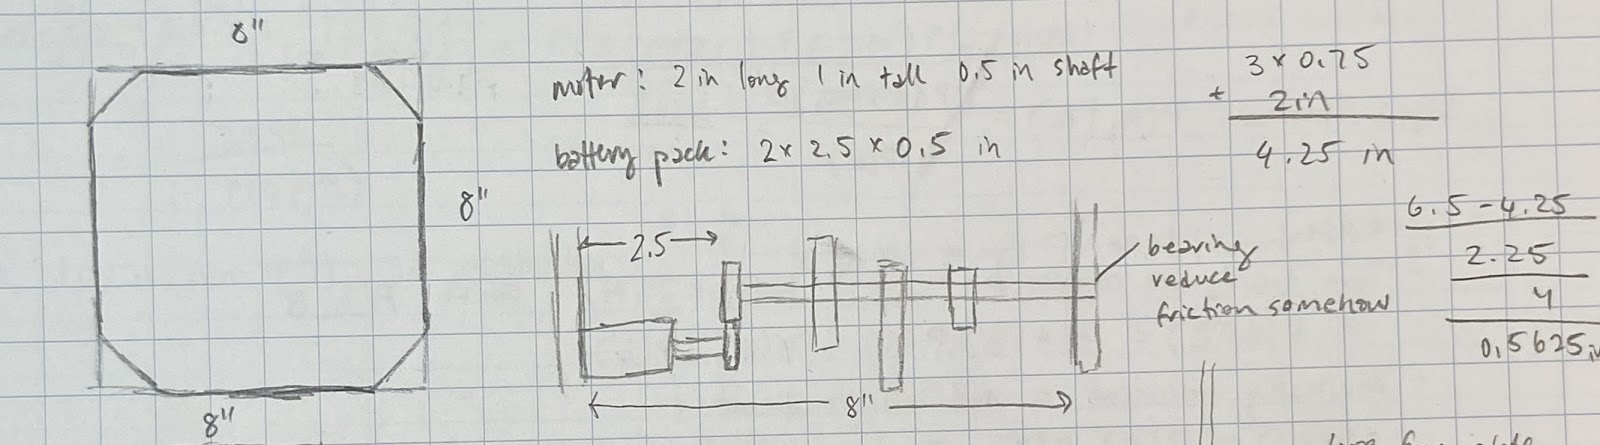 8"
motor: 2 in long 1 in tall 0.5 in shaft
battery pack: 2 x 2.5 x 0.5 in
3 x 0.75
+ 2in
4.25 in
8"
6.5 - 4.25
2.25
4
0.5625 in
2.5
bearing
reduce
friction somehow
8"
8"